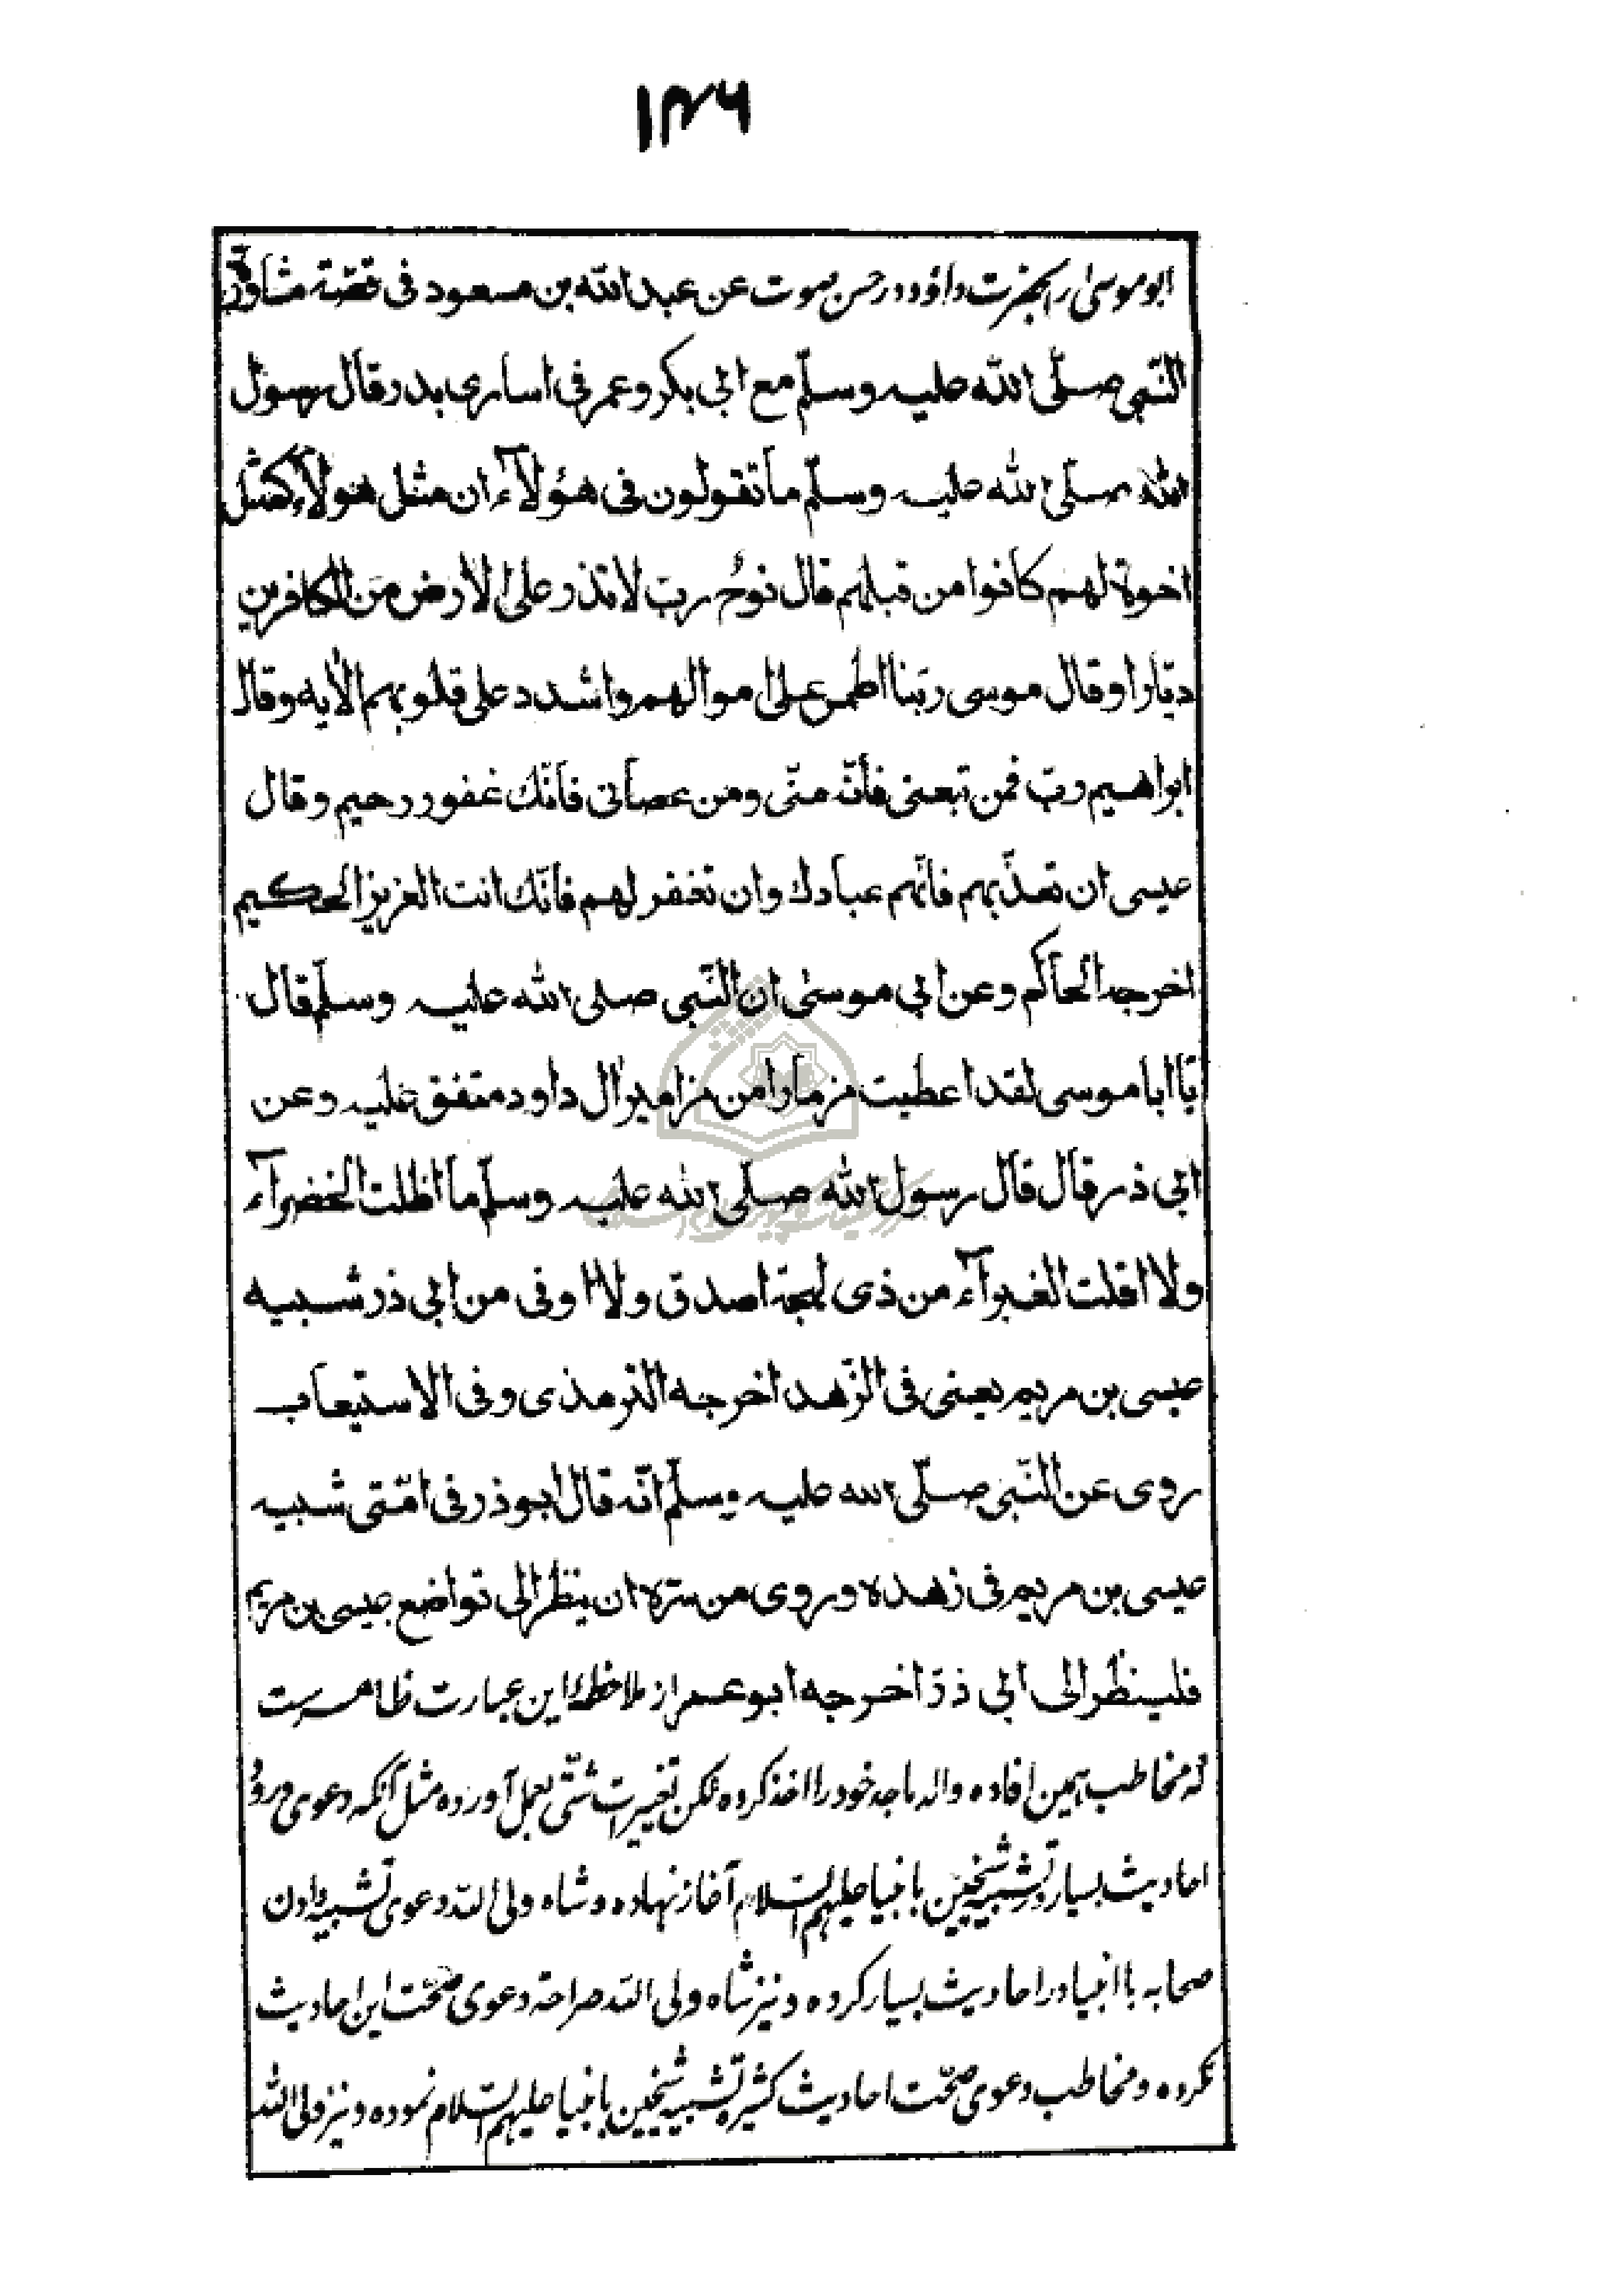 ۱۴۶
ابو موسیٰ را بحضرت داؤد در حسن صوت عن عبد الله بن مسعود فی قصّة مشاورة
النّبی صلّی الله علیه وسلّم مع ابی بکر وعمر فی اساری بدر قال رسول
الله صلّی الله علیه وسلّم ما تقولون فی هؤلآء ان مثل هولآء کمثل
اخوة لهم کانوا من قبلهم قال نوح رب لا تذر علی الارض من الکافرین
دیّارا وقال موسی ربّنا اطمس علی اموالهم واشدد علی قلوبهم الآیه وقال
ابراهیم ربّ فمن تبعنی فانّه منّی ومن عصانی فانّک غفور رحیم وقال
عیسی ان تعذّبهم فانّهم عبادک وان تغفر لهم فانّک انت العزیز الحکیم
اخرجه الحاکم وعن ابی موسیٰ ان النّبی صلی الله علیه وسلّم قال
یا ابا موسی لقد اعطیت مزمارا من مزامیر ال داود متفق علیه وعن
ابی ذر قال قال رسول الله صلّی الله علیه وسلّم ما اظلت الخضرآء
ولا اقلت الغبرآء من ذی لهجة اصدق ولا اوفی من ابی ذر شبیه
عیسی بن مریم یعنی فی الزّهد اخرجه الترمذی وفی الاستیعاب
روی عن النّبی صلّی الله علیه وسلّم انّه قال ابو ذر فی امّتی شبیه
عیسی بن مریم فی زهده وروی من سرّه ان ینظر الی تواضع عیسی بن مریم
فلینظر الی ابی ذرّ اخرجه ابو عمر از ملاحظهٔ این عبارت ظاهرست
که مخاطب همین افاده والد ماجد خود را اخذ کرده لکن تغییرات شتّی بعمل آورده مثل آنکه دعوی ورود
احادیث بسیار در تشبیه شیخین با انبیا علیهم السّلام آغاز نهاده و شاه ولی الله دعوی تشبیه دادن
صحابه با انبیا در احادیث بسیار کرده و نیز شاه ولی الله صراحة دعوی صحّت این احادیث
نکرده و مخاطب دعوی صحّت احادیث کثیره تشبیه شیخین با انبیا علیهم السّلام نموده و نیز ولی الله